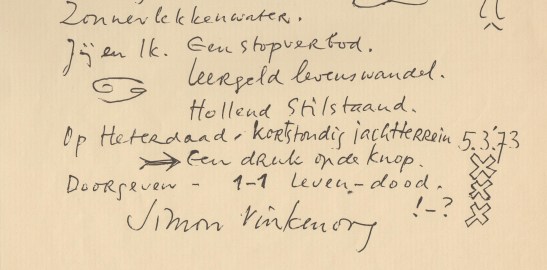 Zonnevlekkenwater.
Jij en Ik. Een stopverbod.
Leergeld levenswandel.
Hollend Stilstaand.
Op Heterdaad. kortstondig jachtterrein 5.3.'73
Een druk op de knop.
Doorgeven - 1-1 Leven-dood.
!-?
Simon Vinkenoog